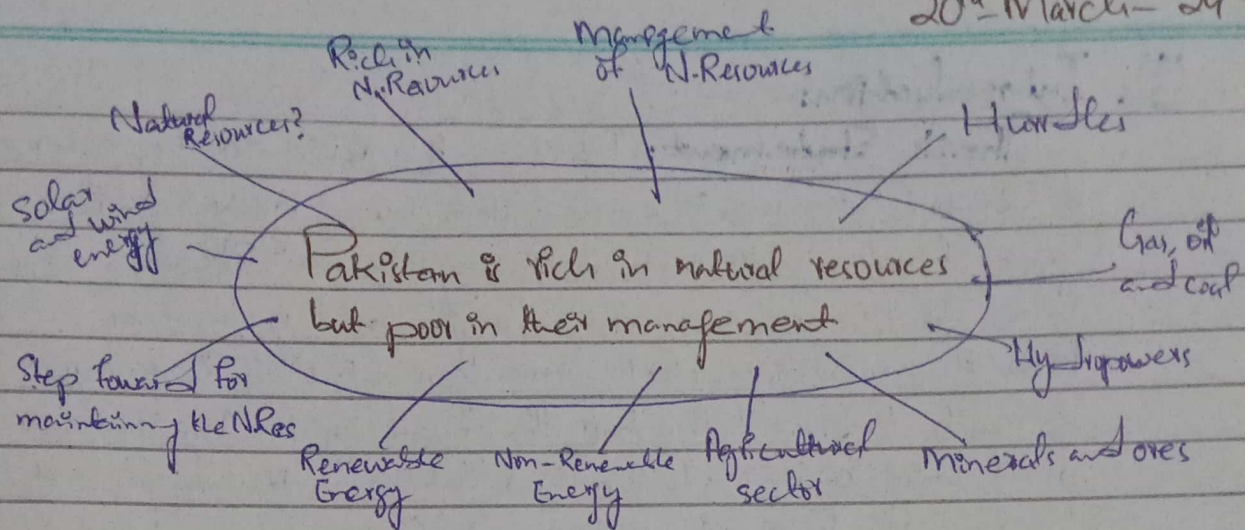 20th - March - 24
Rich in
N. Raources
Mangement
of N. Resources
Natural
Resources?
Hurdles
Solar
and wind
energy
Pakistan is rich in natural resources
but poor in their management
Gas, oil
and coal
Hydropowers
Step toward for
maintaining the NRes
Renewable
Energy
Non-Renewable
Energy
Agricultural
sector
Minerals and ores